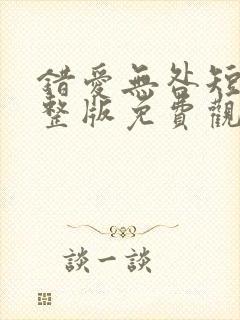 錯愛無咎短
整版免費觀
談一談